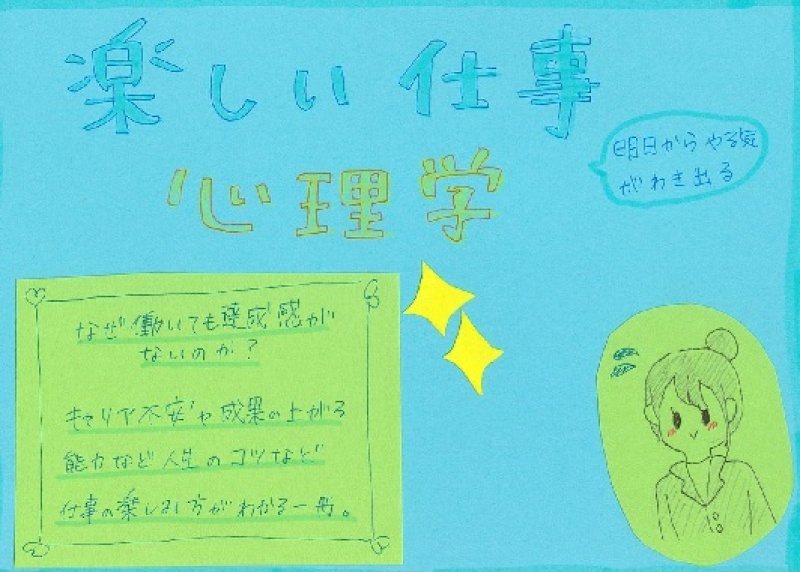 楽しい仕事
心理学
明日からやる気
がわき出る
なぜ働いても達成感が
ないのか?
キャリア不安や成果の上がる
能力など人生のコツなど
仕事の楽しみ方がわかる一冊。